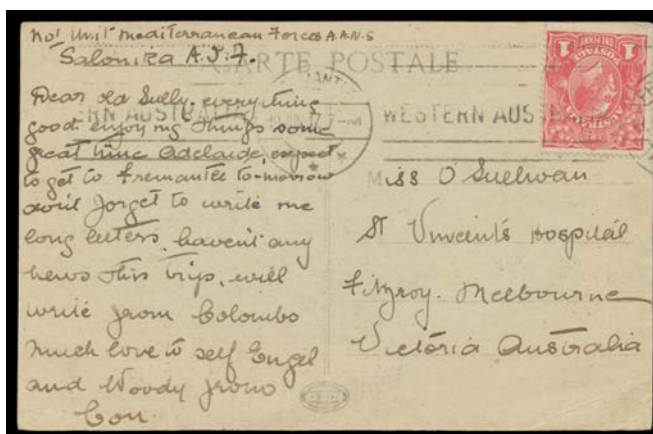 No 1 Unit Mediterranean Forces A.A.N.S
Salonika A.I.F.
CARTE POSTALE
Dear old Sully. everything
good. enjoying things some
great time Adelaide, expect
to get to Fremantle to-morrow
dont forget to write me
long letters. havent any
news this trip, will
write from Colombo
much love to self Engel
and Woody from
Con.
WESTERN AUS
POSTAGE
Miss O'Sullivan
St Vincent's Hospital
Fitzroy. Melbourne
Victoria Australia